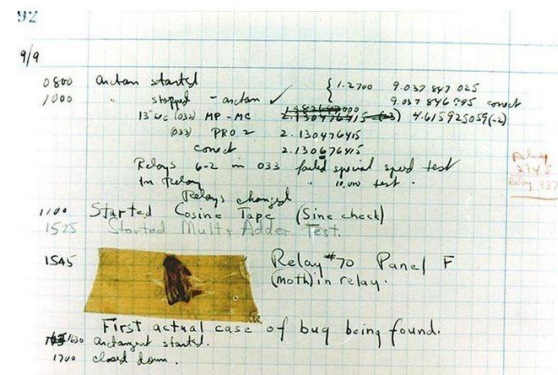 92
9/9
0800 Antan started { 1.2700 9.037 847 025
1000 " stopped - antan ✓ 9.037 846 995 conect
13"uc (032) MP-MC 2.130476415 (-3) 4.615925059(-2)
(033) PRO 2 2.130476415
conect 2.130676415
Relays 6-2 in 033 failed special speed test
In Relay " 10,000 test.
Relays changed
Relay
3370
1100 Started Cosine Tape (Sine check)
1525 Started Mult+Adder Test.
1545 Relay #70 Panel F
(moth) in relay.
First actual case of bug being found.
1630 antangent started.
1700 closed down.